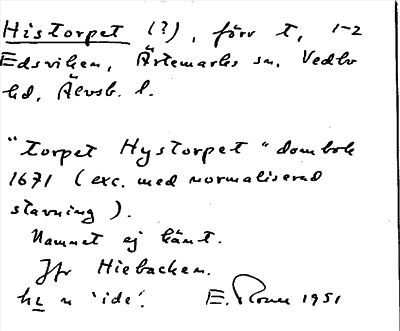 Historpet (?), förr t, 1-2
Edsviken, Ärtemarks sn, Vedbo
hd, Älvsb. l.
"torpet Hystorpet" dombok
1671 (exc. med normaliserad
stavning).
Namnet ej känt.
Jfr Hiebacken.
hi n 'ide'. E. 1951